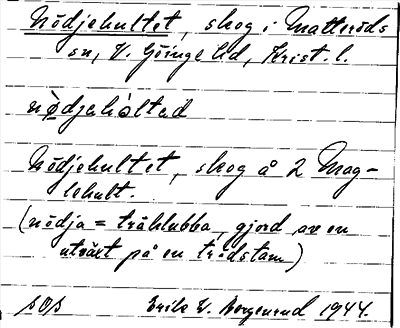 Nödjehultet, skog i Matteröds
sn, V. Göinge hd, Krist. l.
nødjahòltad
Nödjehultet, skog å 2 Mag-
lehult.
(nödja = träklubba, gjord av en
utväxt på en trädstam)
SOS Erik W. Bergenrud 1944.